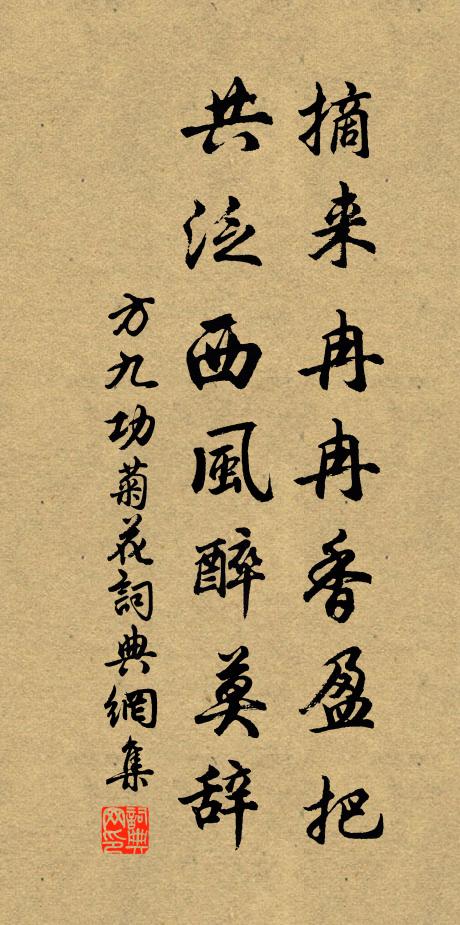 摘来冉冉香盈把
共泛西風醉莫辞
方九功菊花詞典網集
詞典网印